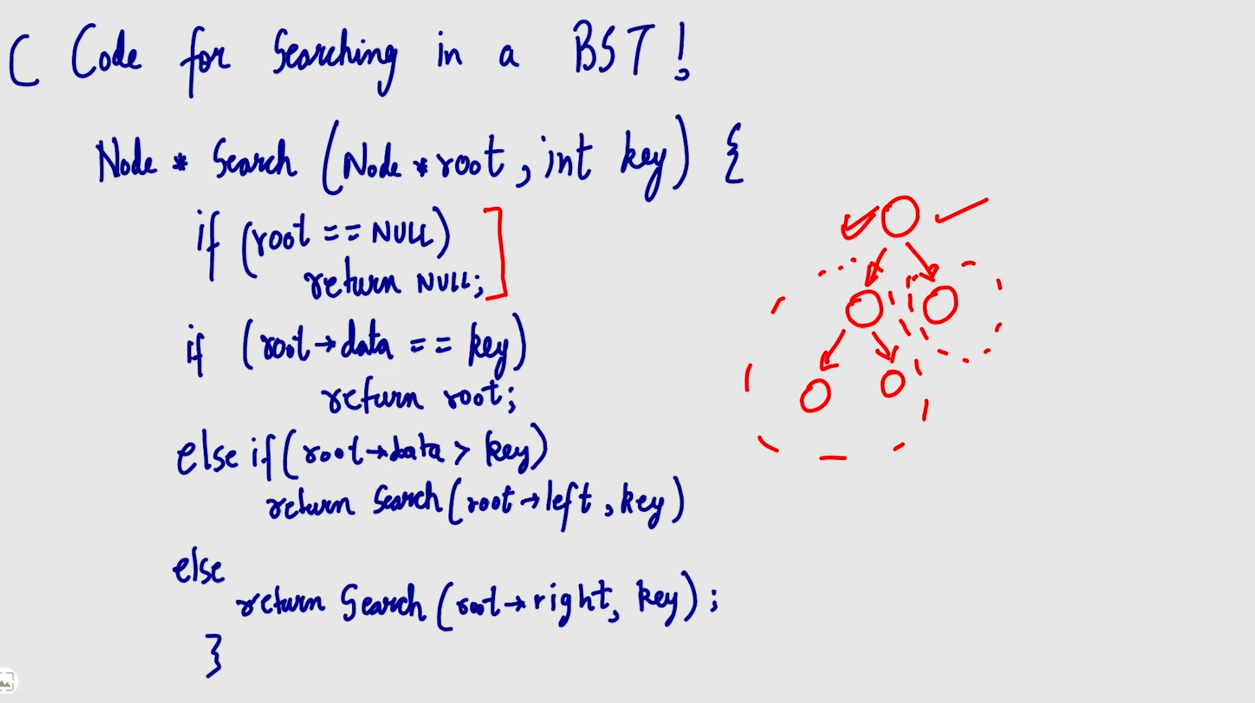 C Code for Searching in a BST!
Node * Search (Node *root, int key) {
if (root == NULL)
return NULL;
if (root→data == key)
return root;
else if (root→data > key)
return Search (root→left, key)
else
return Search (root→right, key);
}